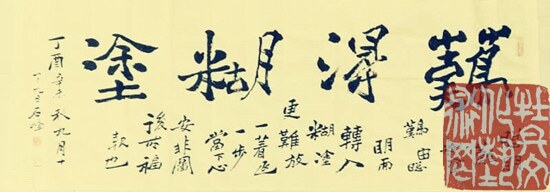 難得糊塗
難由聰
明而
轉入
糊塗
更難放
一着退
一步
當下心
安非圖
後來福
報也
丁酉 秋九月十